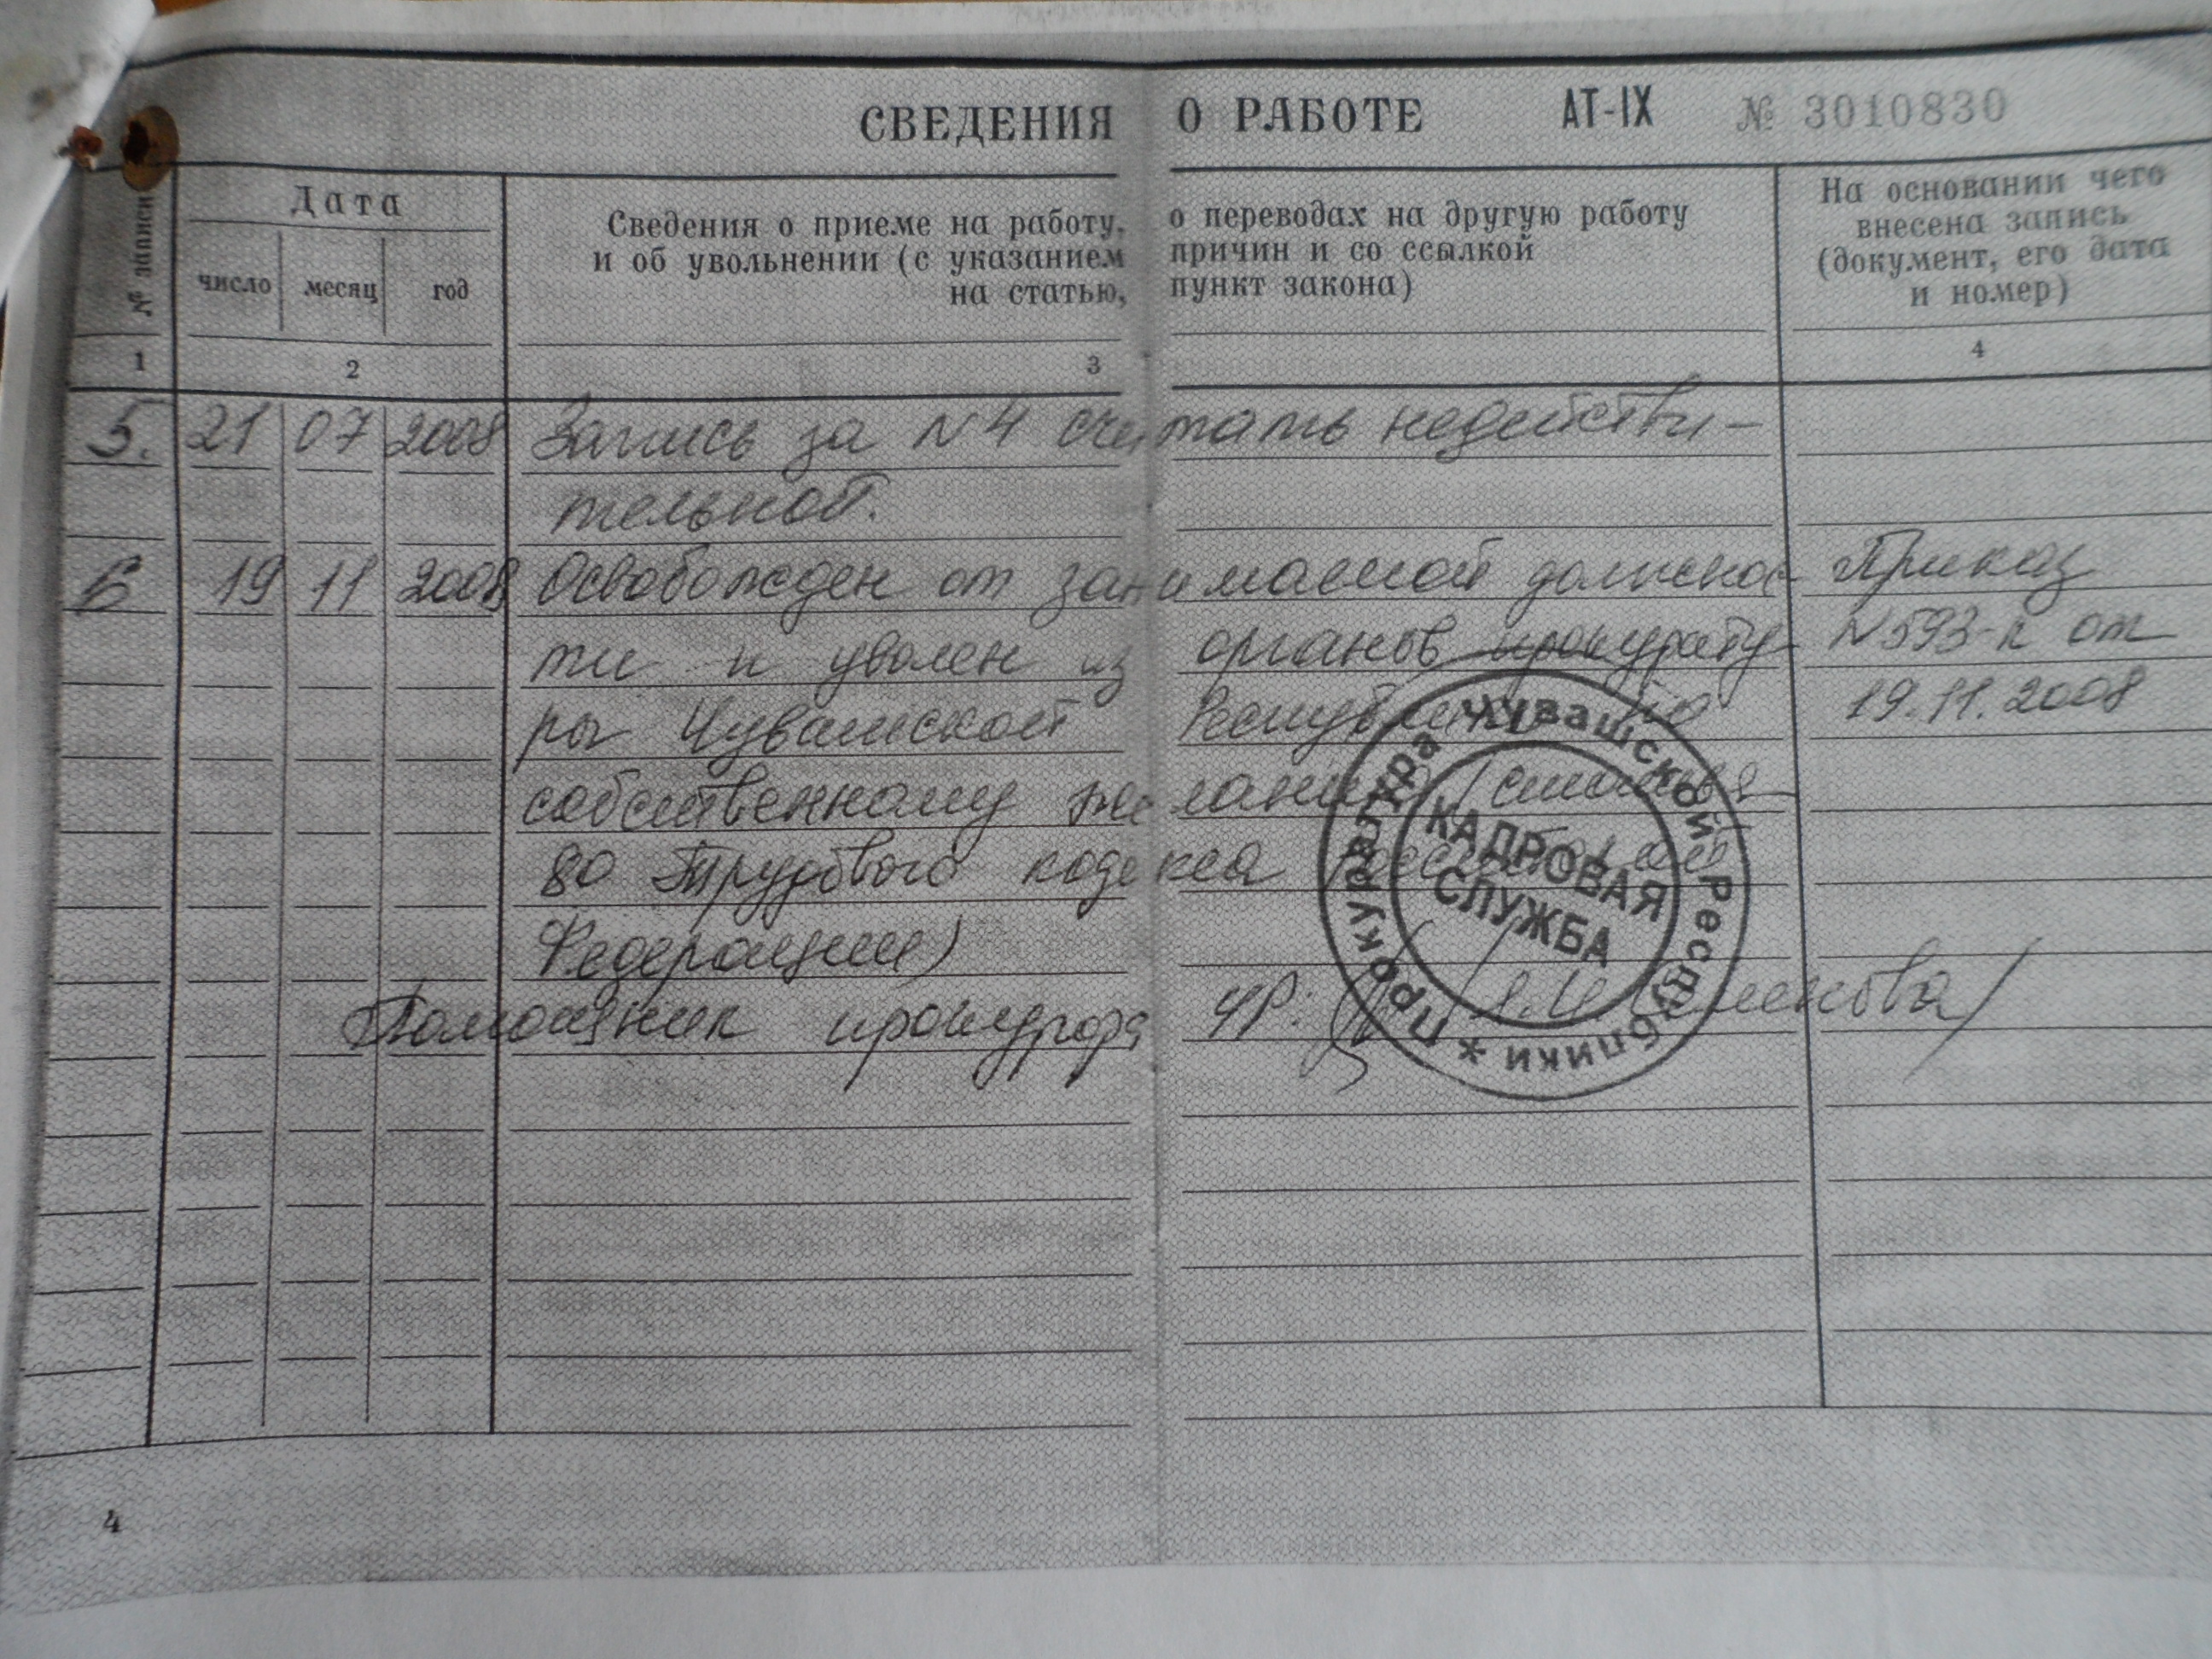 СВЕДЕНИЯ О РАБОТЕ АТ-IX № 3010830
№ записи
Дата
число месяц год
Сведения о приеме на работу, о переводах на другую работу
и об увольнении (с указанием причин и со ссылкой
на статью, пункт закона)
На основании чего
внесена запись
(документ, его дата
и номер)
1 2 3 4
5. 21 07 2008 Запись за N 4 считать недействи-
тельной.
6 19 11 2008 Освобожден от занимаемой должнос- Приказ
ти и уволен из органов прокурату- N 593-к от
ры Чувашской Республики по 19.11.2008
собственному желанию (статья
80 Трудового кодекса Российской
Федерации)
Помощник прокурора ЧР: Семенова/
Прокуратура Чувашской Республики *
КАДРОВАЯ
СЛУЖБА
4